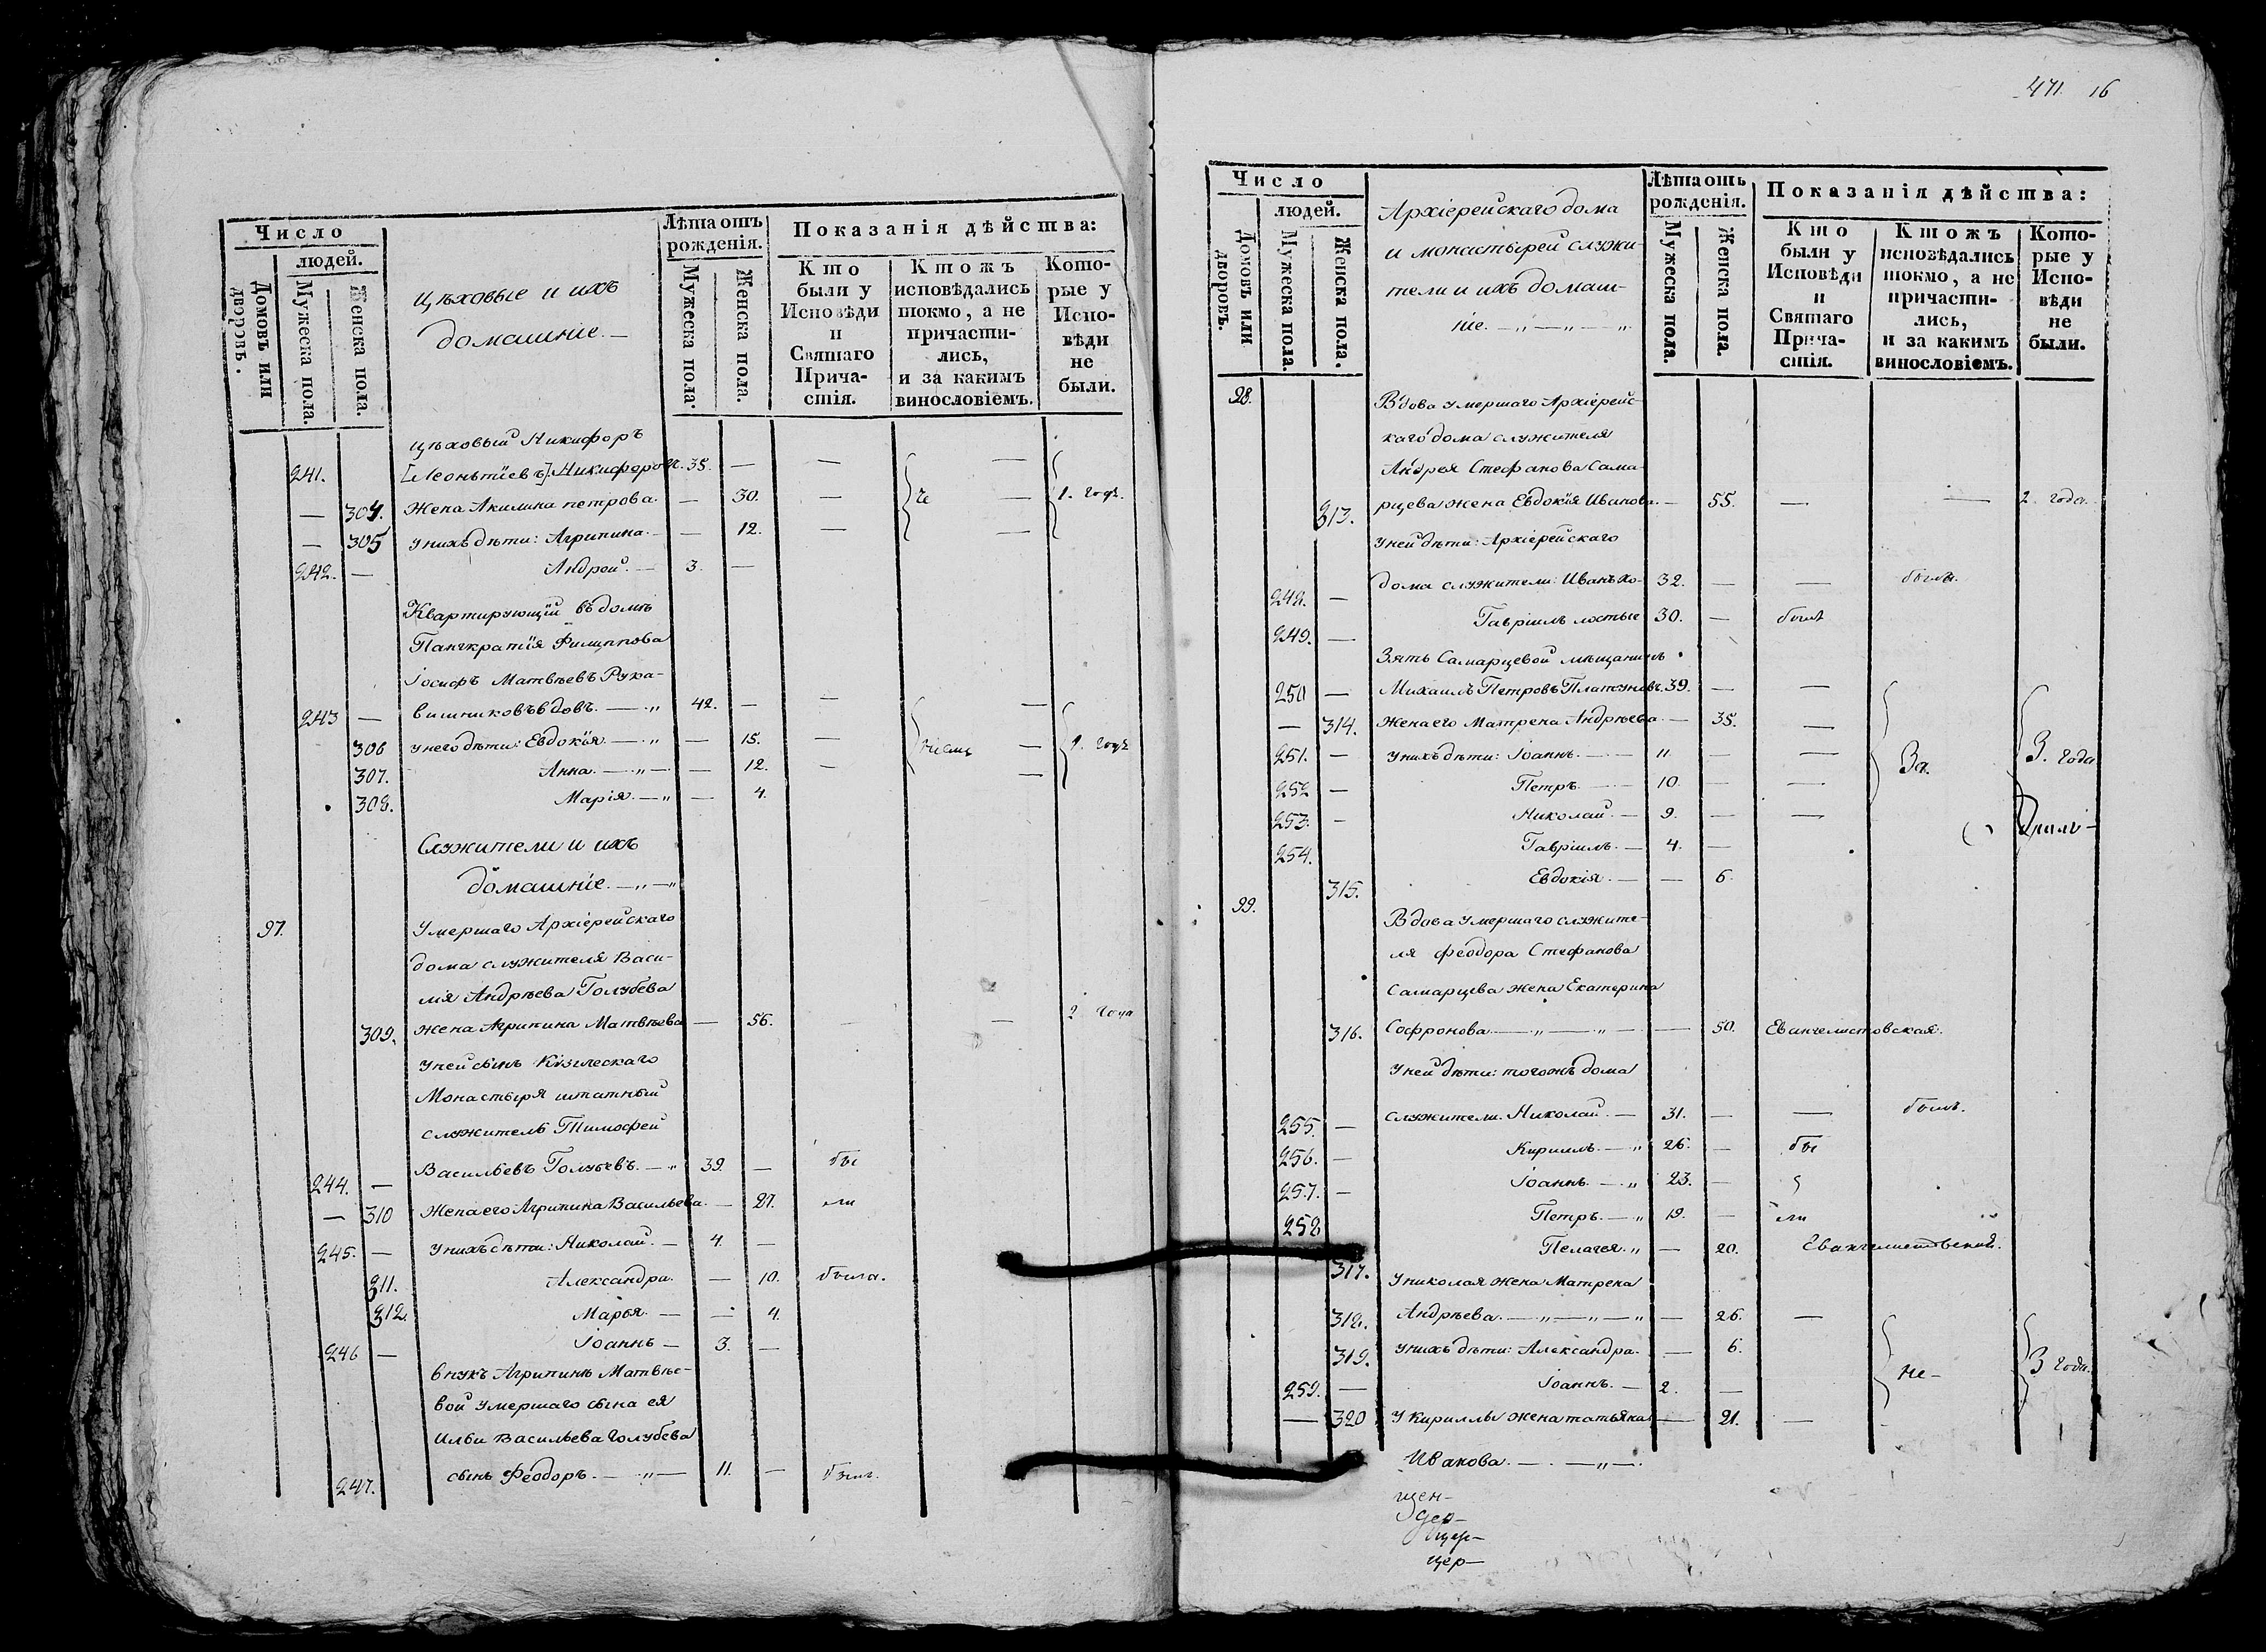 471. 16
Число
людей.
Домовъ или дворовъ.
Мужеска пола.
Женска пола.
цѣховые и ихъ
домашніе. —
Лѣта отъ рожденія.
Мужеска пола.
Женска пола.
Показанія дѣйства:
Кто были у Исповѣди и Святаго Причастія.
Ктожъ исповѣдались токмо, а не причастились, и за какимъ винословіемъ.
Которые у Исповѣди не были.
цѣховый Никифоръ
241. [Леонтіевъ] Никифоровъ. 35. — — —
— 304. Жена Акилина петрова. — 30. — — 1. годъ.
— 305 У нихъ дѣти: Агрипина. — — 12. — —
242. — Андрей. — 3. —
Квартирующій въ домѣ
Пангкратія Филиппова
Іосифъ Матвѣевъ Рука-
243 — вишниковъ вдовъ. — „ 42. — — —
306 у него дѣти: Евдокія — „ — 15. — — 1. годъ
307. Анна. — „ — — 12. — —
308. Марія. — „ — 4.
Служители и ихъ
домашніе. — „ — „
97. Умершаго Архіерейскаго
дома служителя Васи-
лія Андрѣева Голубева
309. жена Агрипина Матвѣева — 56. — — 2 года
У ней сынъ Кизическаго
Монастыря штатный
служитель Тимофей
244. — Васильевъ Голубевъ. — „ 39. — бы
— 310 Жена его Агрипина Васильева. — 27. ли
245. — У нихъ дѣти: Николай. — 4. —
311. Александра. — 10. была.
312. Марья. — — 4.
246 — Іоаннъ — 3. —
внукъ Агрипинѣ Матвѣе-
вой умершаго сына ея
Ильи Васильева Голубева
247. сынъ Феодоръ. — „ — 11. — былъ.
Число
людей.
Домовъ или дворовъ.
Мужеска пола.
Женска пола.
Архіерейскаго дома
и монастырей служи-
тели и ихъ домаш-
ніе. — „ — „ — „
Лѣта отъ рожденія.
Мужеска пола.
Женска пола.
Показанія дѣйства:
Кто были у Исповѣди и Святаго Причастія.
Ктожъ исповѣдались токмо, а не причастились, и за какимъ винословіемъ.
Которые у Исповѣди не были.
98. Вдова умершаго Архіерейс-
каго дома служителя
Андрея Стефанова Сама-
313. рцева жена Евдокія Иванова. — 55. — — 2 года.
У ней дѣти: Архіерейскаго
248. — дома служители: Иванъ хо- 32. — — былъ.
249. — Гавріилъ лостые 30. — былъ
Зять Самарцевой мѣщанинъ
250 — Михаилъ Петровъ Платуновъ. 39. — —
— 314. Жена его Матрена Андрѣева — 35. —
251. — У нихъ дѣти: Іоаннъ. — 11 — — 3. года
252 — Петръ. — 10. — —
253. — Николай. — 9. — —
254. Гавріилъ. — 4. —
315. Евдокія. — — 6.
99. Вдова умершаго служите-
ля Феодора Стефанова
Самарцева жена Екатерина
316. Софронова — „ — „ — — 50. Евангелистовская.
У ней дѣти: тогожъ дома
255. — служители. Николай. — 31. — — былъ.
256. — Кириллъ. — „ 26. — бы
257. — Іоаннъ. — „ 23. —
258 Петръ. — „ 19. — ли
317. Пелагея. „ — 20.
У николая жена Матрена
318. Андрѣева. — „ — „ — „ — 26. —
319. У нихъ дѣти: Александра. — 6. не- 3 года.
259. — Іоаннъ. — 2. —
— 320 У Кириллы жена татьяна — 21. —
Иванова. — . — „ — .